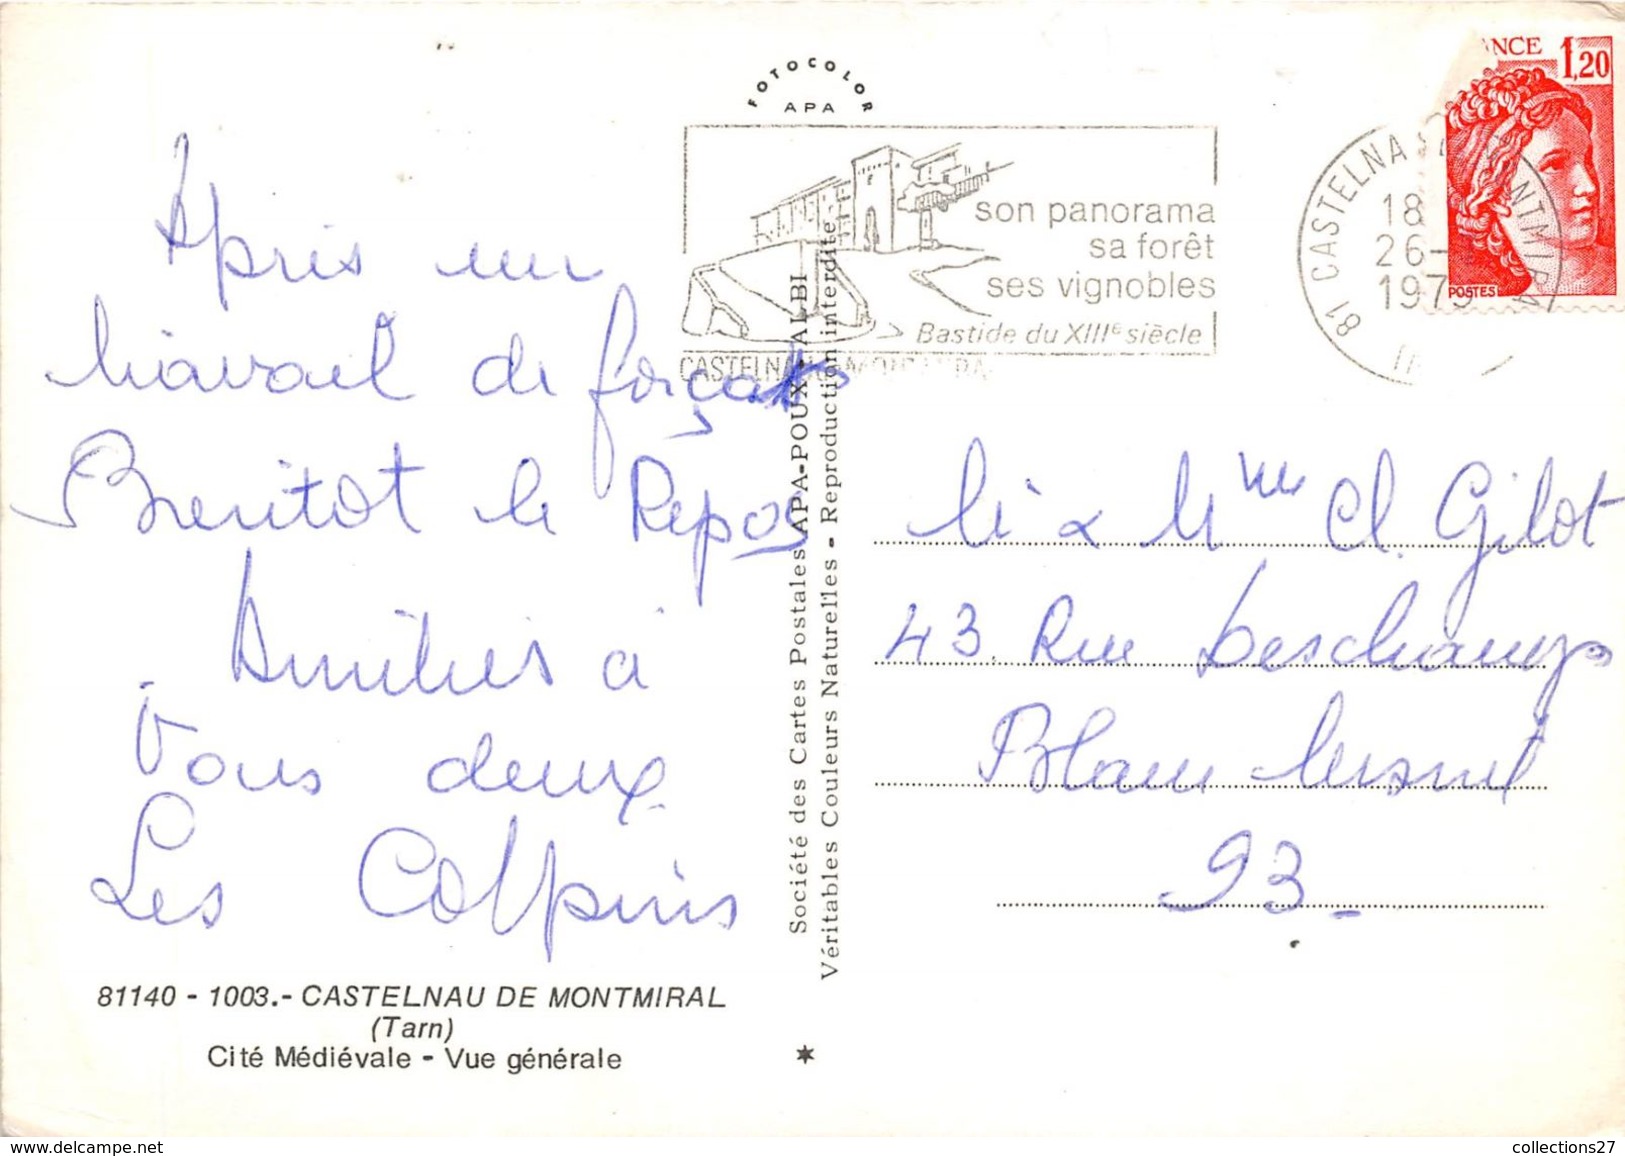 FOTOCOLOR
APA
son panorama
sa forêt
ses vignobles
Bastide du XIIIe siècle
CASTELNAU
81 CASTELNAU DE MONTMIRAL
18
26-
1979
1,20
POSTES
Après un
travail de forçat
Bientot le Repos
Amitiés à
Vous deux
Les
81140 - 1003.- CASTELNAU DE MONTMIRAL
(Tarn)
Cité Médiévale - Vue générale
Société des Cartes Postales APA-POUX - ALBI
Véritables Couleurs Naturelles - Reproduction interdite
Mme Cl. Gilot
43 Rue Deschamps
Blanc Mesnil
93_
delcampe.net
collections27